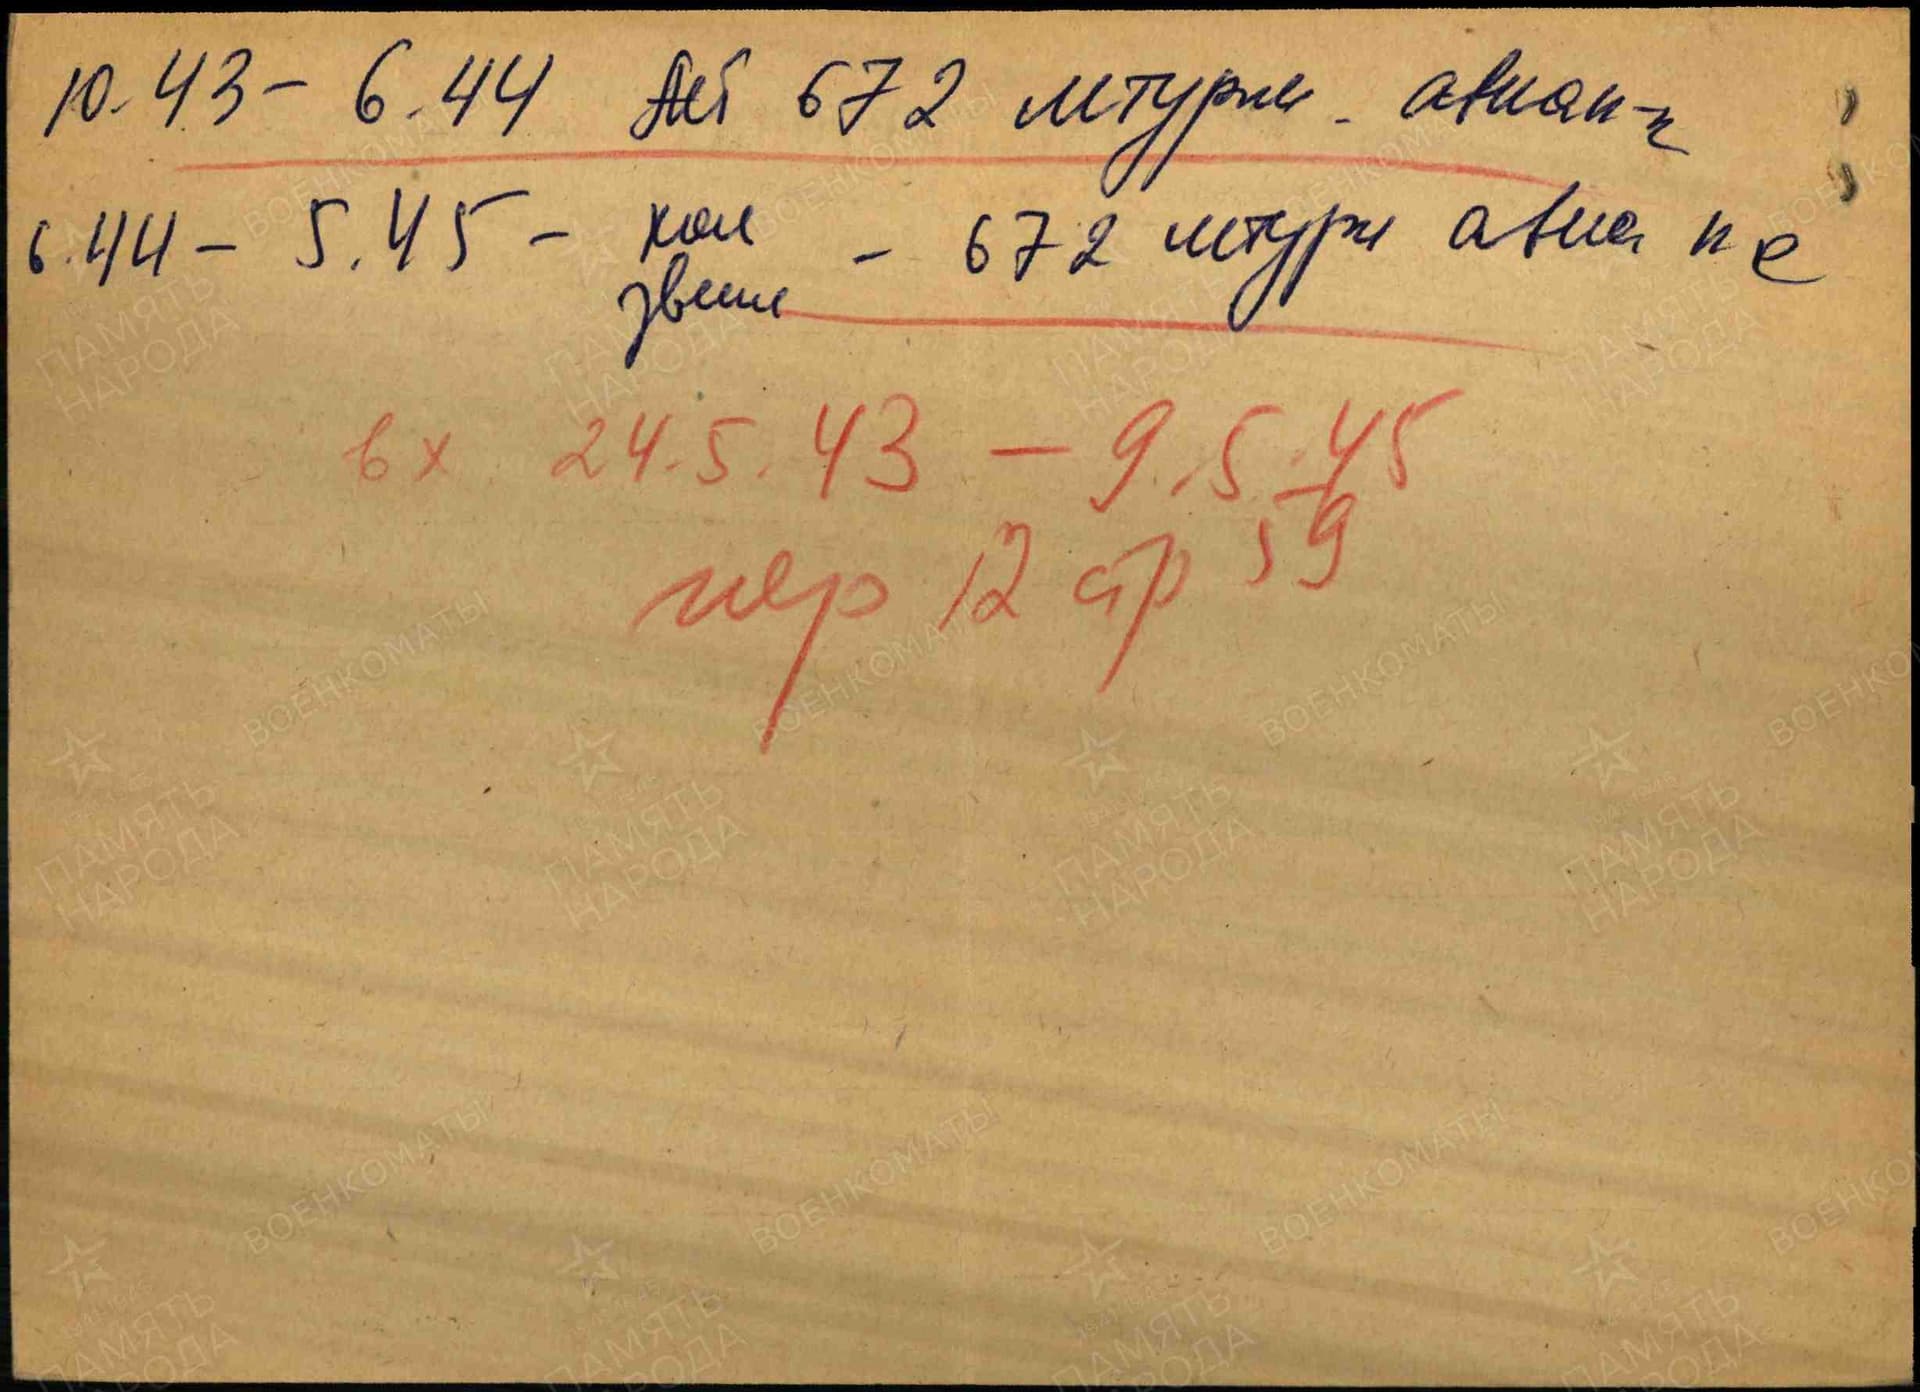 10.43 – 6.44 Лет 672 штурм. авиап-к
6.44 – 5.45 – ком звена – 672 штурм авиа п-к
вх 24.5.43 – 9.5.45
пер 12 стр 59
ПАМЯТЬ НАРОДА
ВОЕНКОМАТЫ